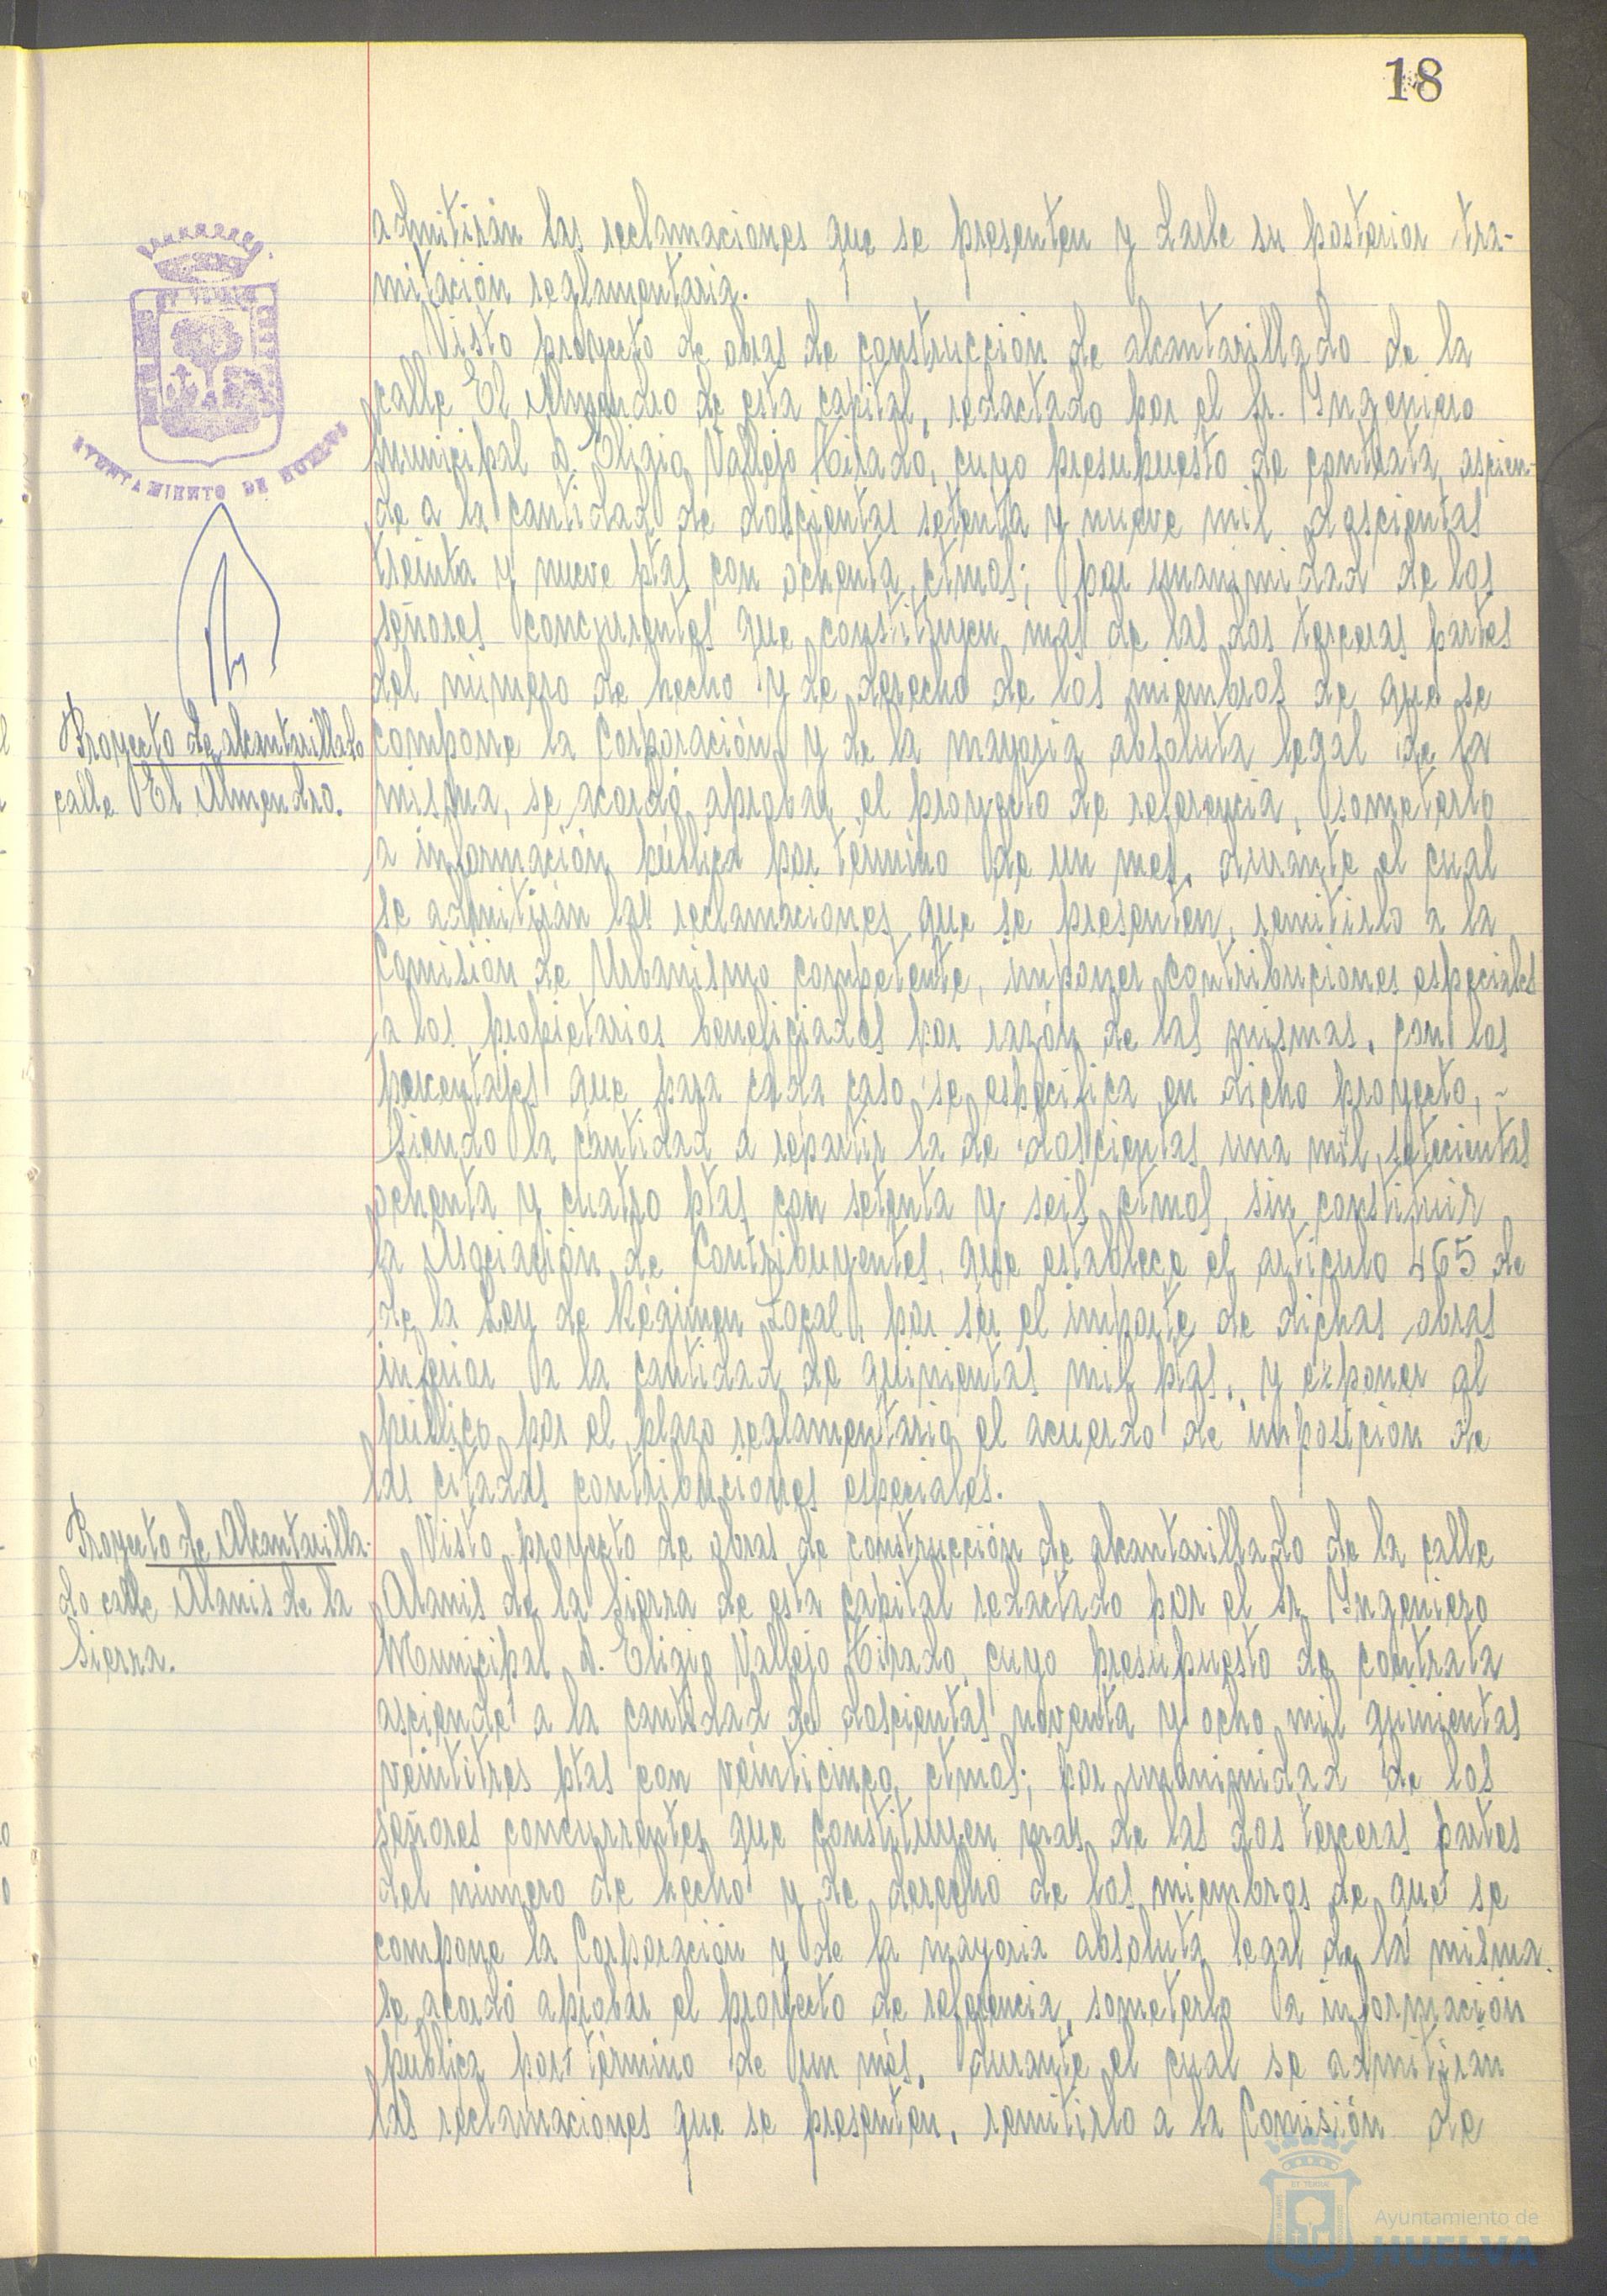 18
admitirán las reclamaciones que se presenten y darle su posterior tra-
mitación reglamentaria.
Visto proyecto de obras de construcción de alcantarillado de la
calle El Almendro de esta capital, redactado por el Sr. Yngeniero
municipal D. Eligio Vallejo Hirado, cuyo presupuesto de contrata, ascien-
de a la cantidad de doscientas setenta y nueve mil doscientas
treinta y nueve ptas con ochenta ctmos; por unanimidad de los
señores concurrentes que constituyen mas de las dos terceras partes
del número de hecho y de derecho de los miembros de que se
compone la Corporación y de la mayoria absoluta legal de la
misma, se acordó aprobar el proyecto de referencia, someterlo
a información pública por termino de un mes, durante el cual
se admitirán las reclamaciones que se presenten, remitirlo a la
Comisión de Urbanismo competente, imponer contribuciones especiales
a los propietarios beneficiados por razón de las mismas, con los
porcentajes que para cada caso se especifica en dicho proyecto, -
siendo la cantidad a repartir la de doscientas una mil setecientas
ochenta y cuatro ptas con setenta y seis ctmos, sin constituir
la Asociación de Contribuyentes, que establece el articulo 465 de
de la Ley de Régimen Local, por ser el importe de dichas obras
inferior a la cantidad de quinientas mil ptas, y exponer al
público por el plazo reglamentario el acuerdo de imposición de
las citadas contribuciones especiales.
Visto proyecto de obras de construcción de alcantarillado de la calle
Alanis de la Sierra de esta capital redactado por el Sr. Yngeniero
Municipal D. Eligio Vallejo Hirado, cuyo presupuesto de contrata
asciende a la cantidad de doscientas noventa y ocho mil quinientas
veintitres ptas con veinticinco ctmos; por unanimidad de los
señores concurrentes que constituyen mas de las dos terceras partes
del número de hecho y de derecho de los miembros de que se
compone la Corporación y de la mayoria absoluta legal de la misma.
se acordó aprobar el proyecto de referencia, someterlo a información
publica por término de un més, durante el cual se admitirán
las reclamaciones que se presenten, remitirlo a la Comisión de
AYUNTAMIENTO DE HUELVA
Proyecto de alcantarillado
calle El Almendro.
Proyecto de Alcantarilla-
do calle Alanis de la
Sierra.
Ayuntamiento de
HUELVA